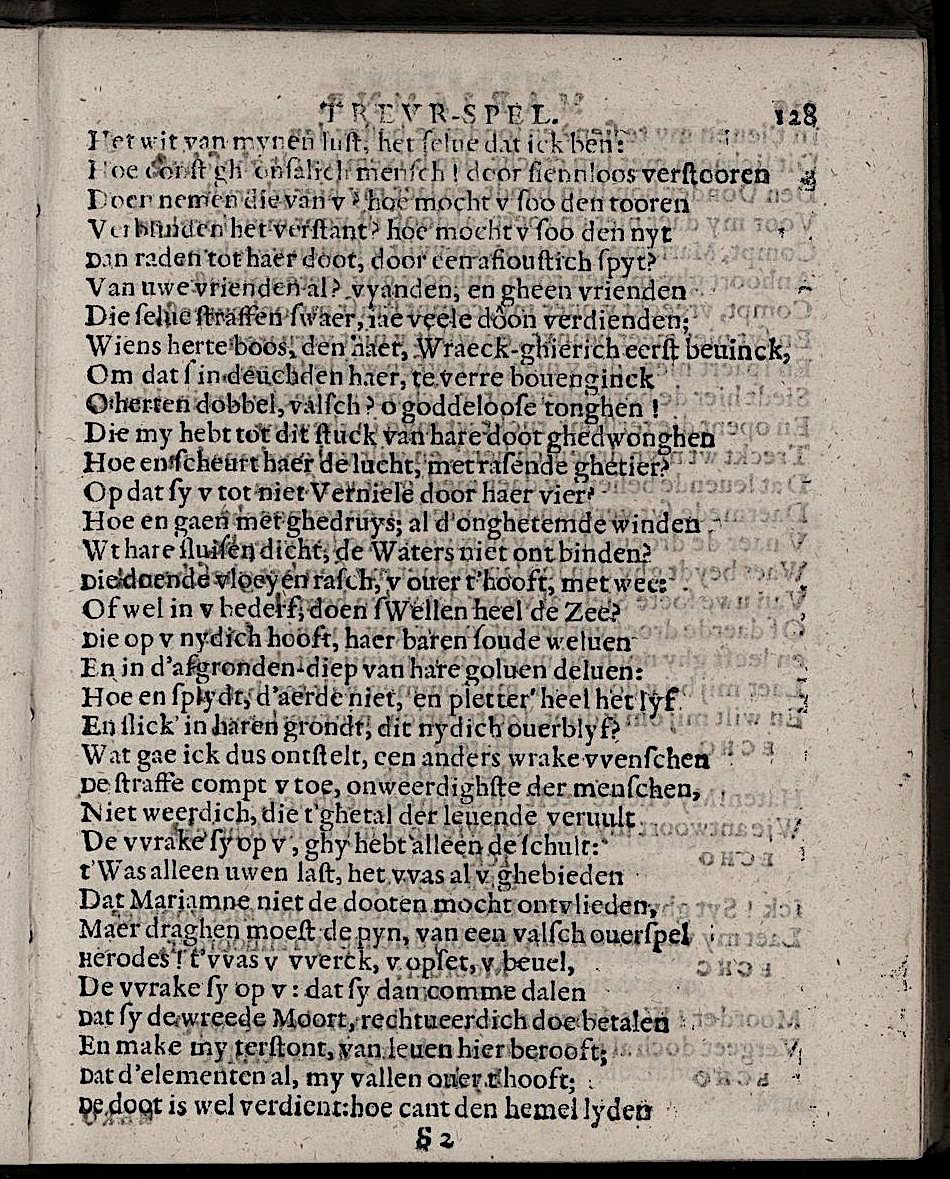 TREVR-SPEL. 128
Het wit van mynen lust, het selue dat ick ben:
Hoe const gh' onsalich mensch! door siennloos verstooren
Doen nemen die van v? hoe mocht v soo den tooren
Verblinden het verstant? hoe mocht v soo den nyt
Dan raden tot haer doot, door een afioustich spyt?
Van uwe vrienden al? vyanden, en gheen vrienden
Die selue straffen swaer, iae veele doon verdienden;
Wiens herte boos, den haet, Wraeck-ghierich eerst beuinck,
Om dat s'in deuchden haer, te verre bouenginck
O herten dobbel, valsch? o goddeloose tonghen!
Die my hebt tot dit stuck van hare doot ghedwonghen
Hoe en scheurt haer de lucht, met rasende ghetier?
Op dat sy v tot niet Verniele door haer vier?
Hoe en gaen met ghedruys; al d'onghetemde winden
Wt hare sluisen dicht, de Waters niet ontbinden?
Die doende vloeyen rasch, v ouer t'hooft, met wee:
Of wel in v bederf, doen sWellen heel de Zee?
Die op v nydich hooft, haer baren soude weluen
En in d'afgronden-diep van hare goluen deluen:
Hoe en splydt, d'aerde niet, en pletter' heel het lyf
En slick' in haren grondt, dit nydich ouerblyf?
Wat gae ick dus ontstelt, een anders wrake vvenschen
De straffe compt v toe, onweerdighste der menschen,
Niet weerdich, die t'ghetal der leuende veruult
De vvrake sy op v, ghy hebt alleen de schult:
t'Was alleen uwen last, het vvas al v ghebieden
Dat Mariamne niet de dooten mocht ontvlieden,
Maer draghen moest de pyn, van een valsch ouerspel
Herodes! t'vvas v vverck, v opset, v beuel,
De vvrake sy op v: dat sy dan comme dalen
Dat sy de wreede Moort, rechtueerdich doe betalen
En make my terstont, van leuen hier berooft;
Dat d'elementen al, my vallen ouer t'hooft;
De doot is wel verdient: hoe cant den hemel lyden
S 2